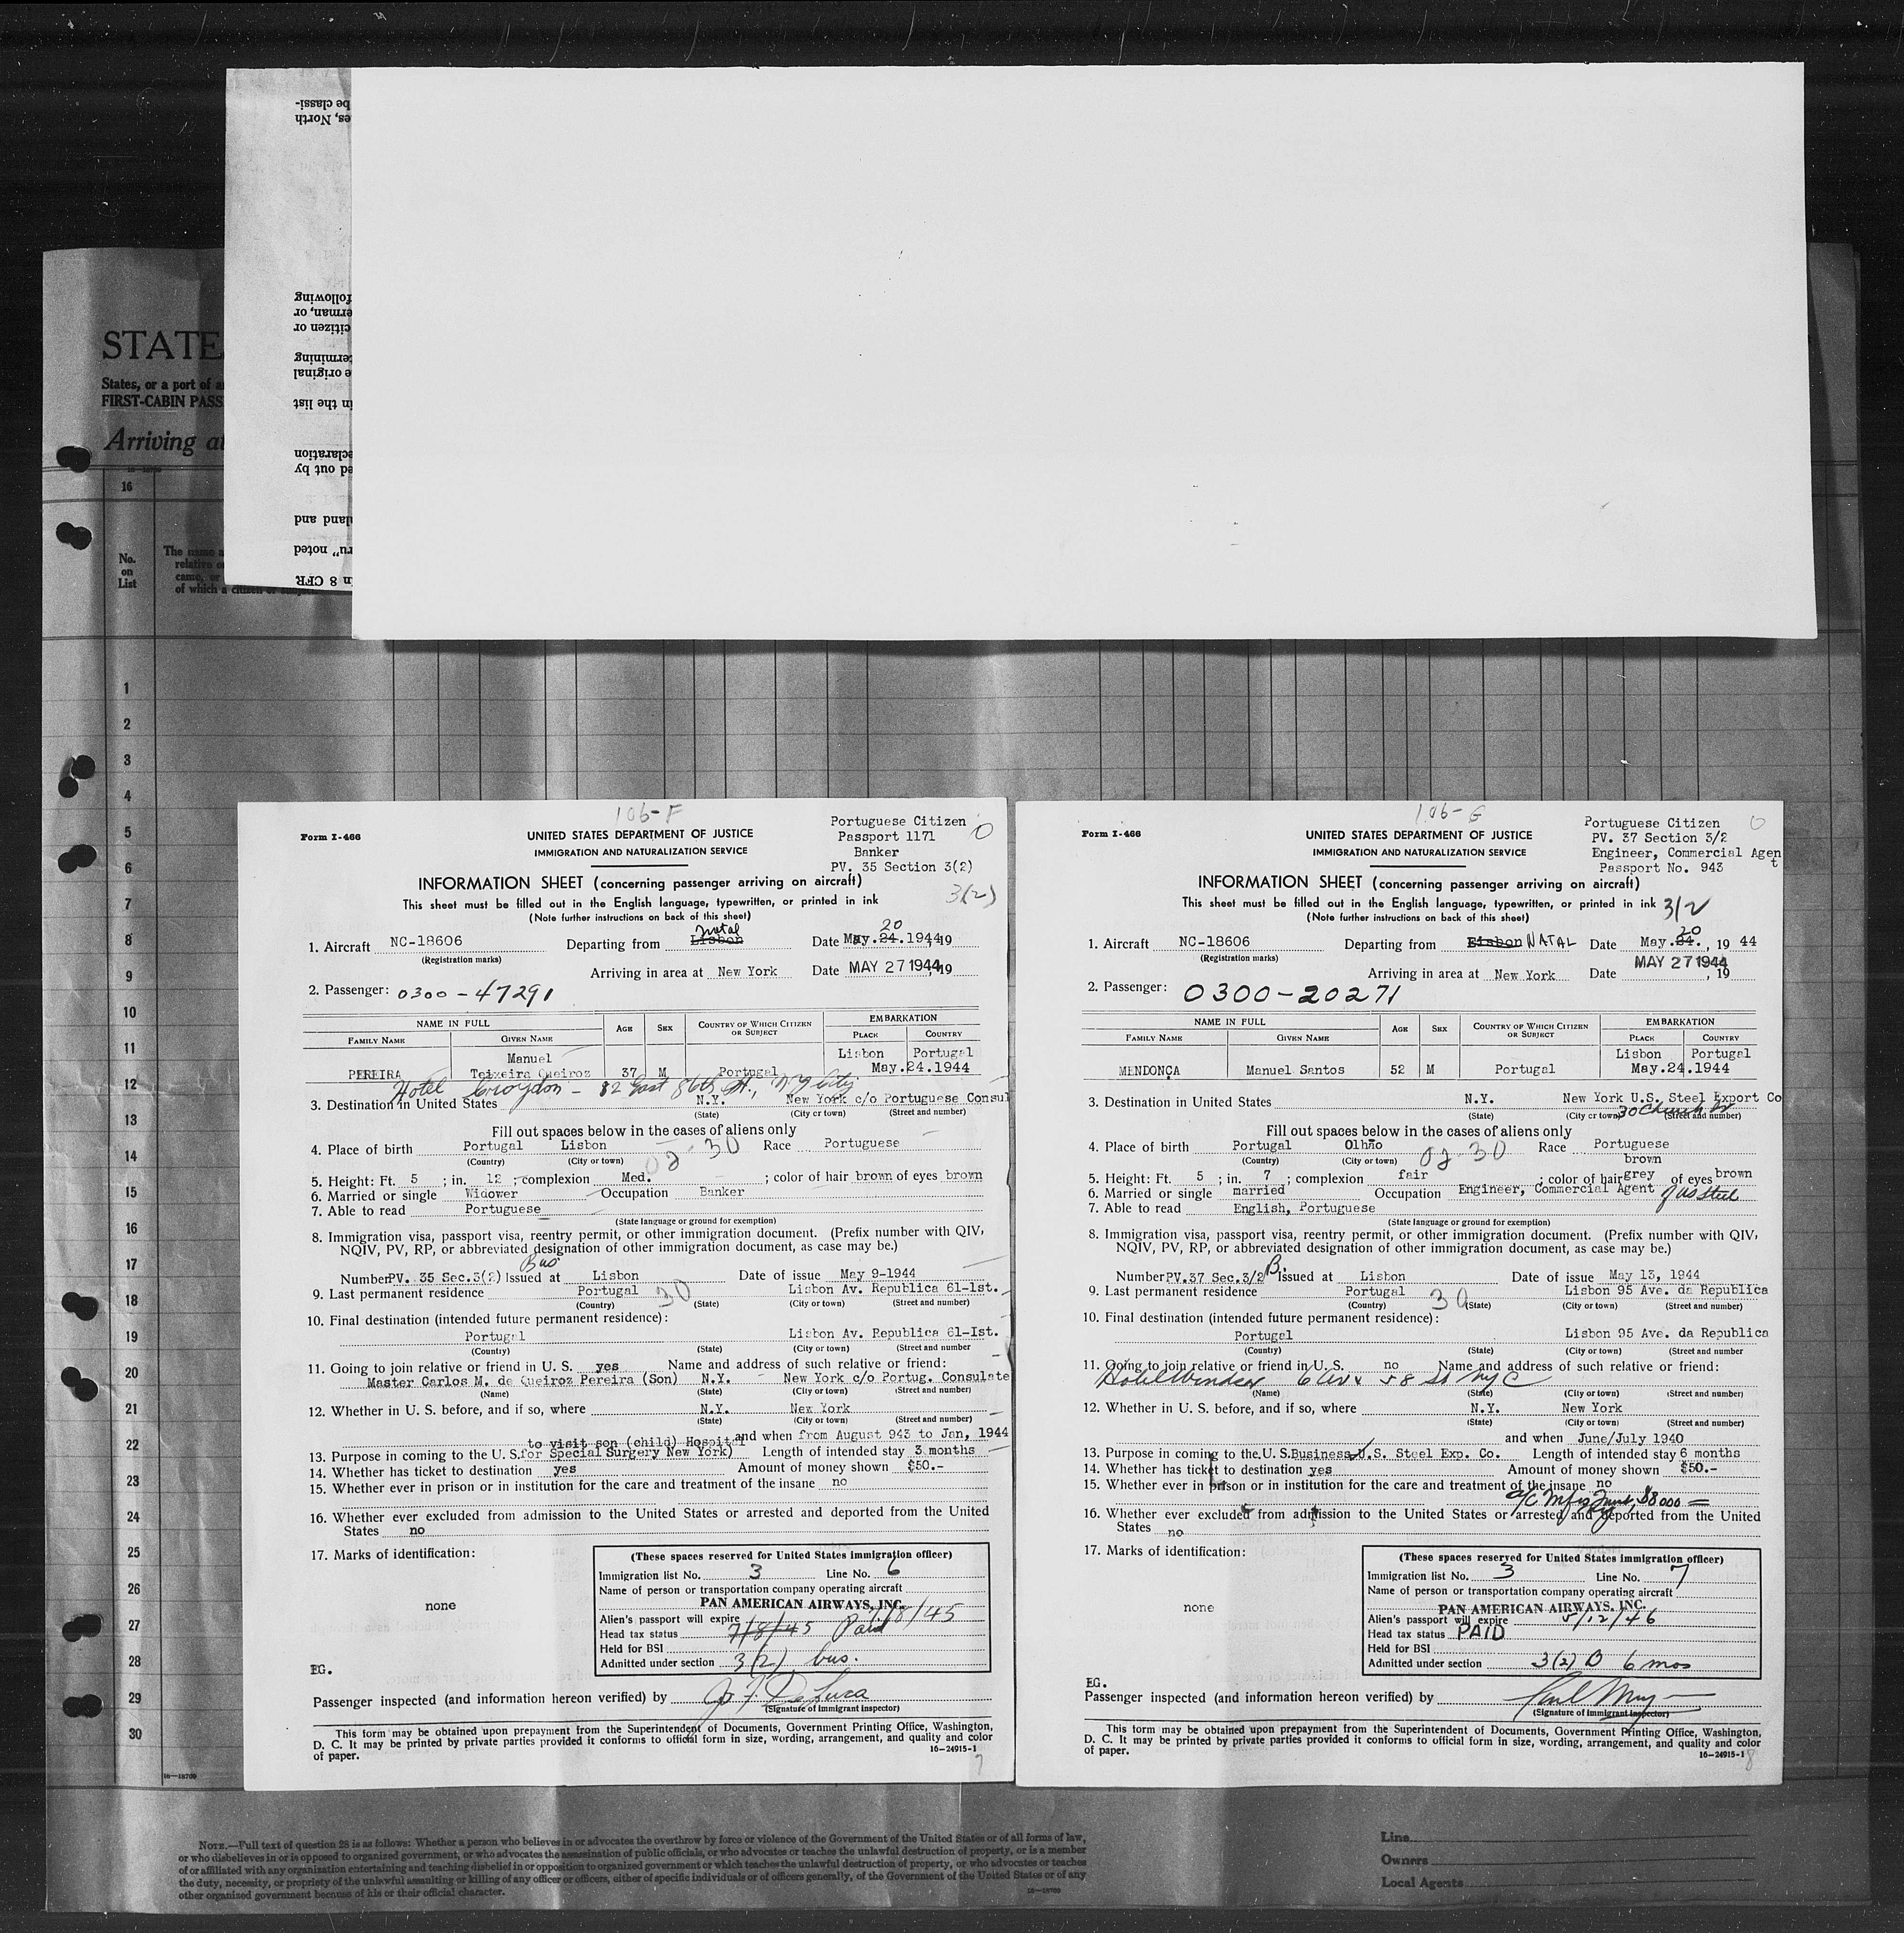 be classi-
es, North
following
erman, or
citizen or
termining
e original
in the list
eclaration
ed out by
land and
ru" noted
in 8 CFR
STATE
States, or a port of a
FIRST-CABIN PASS
Arriving at
16
No.
on
List
The name a
relative o
came, or
of which a citizen or
1
2
3
4
5
6
7
8
9
10
11
12
13
14
15
16
17
18
19
20
21
22
23
24
25
26
27
28
29
30
16—18709
106-F
Form I-466
UNITED STATES DEPARTMENT OF JUSTICE
IMMIGRATION AND NATURALIZATION SERVICE
Portuguese Citizen
Passport 1171
Banker
PV. 35 Section 3(2)
3(2)
INFORMATION SHEET (concerning passenger arriving on aircraft)
This sheet must be filled out in the English language, typewritten, or printed in ink
(Note further instructions on back of this sheet)
1. Aircraft NC-18606 Departing from Lisbon Natal Date May. 24. 20 1944, 19
(Registration marks)
Arriving in area at New York Date MAY 27 1944, 19
2. Passenger: 0300-47291
NAME IN FULL AGE SEX COUNTRY OF WHICH CITIZEN OR SUBJECT EMBARKATION
FAMILY NAME GIVEN NAME PLACE COUNTRY
PEREIRA Manuel Teixeira Queiroz 37 M Portugal Lisbon Portugal
May.24.1944
Hotel Croydon - 12 East 86th St., N Y City
3. Destination in United States N.Y. New York c/o Portuguese Consul
(State) (City or town) (Street and number)
Fill out spaces below in the cases of aliens only
4. Place of birth Portugal Lisbon 02-30 Race Portuguese
(Country) (City or town)
5. Height: Ft. 5 ; in. 12 ; complexion Med. ; color of hair brown of eyes brown
6. Married or single Widower Occupation Banker
7. Able to read Portuguese
(State language or ground for exemption)
8. Immigration visa, passport visa, reentry permit, or other immigration document. (Prefix number with QIV,
NQIV, PV, RP, or abbreviated designation of other immigration document, as case may be.)
Bus
Number PV. 35 Sec.3(2) Issued at Lisbon Date of issue May 9-1944
9. Last permanent residence Portugal 30 Lisbon Av. Republica 61-1st.
(Country) (State) (City or town) (Street and number)
10. Final destination (intended future permanent residence):
Portugal Lisbon Av. Republica 61-Ist.
(Country) (State) (City or town) (Street and number
11. Going to join relative or friend in U. S. yes Name and address of such relative or friend:
Master Carlos M. de Queiroz Pereira (Son) N.Y. New York c/o Portug. Consulate
(Name) (State) (City or town) (Street and number)
12. Whether in U. S. before, and if so, where N.Y. New York
(State) (City or town) (Street and number)
and when from August 943 to Jan, 1944
to visit son (child) Hospital
13. Purpose in coming to the U. S. for Special Surgery New York) Length of intended stay 3 months
14. Whether has ticket to destination yes Amount of money shown $50.-
15. Whether ever in prison or in institution for the care and treatment of the insane no
16. Whether ever excluded from admission to the United States or arrested and deported from the United
States no
17. Marks of identification:
none
(These spaces reserved for United States immigration officer)
Immigration list No. 3 Line No. 6
Name of person or transportation company operating aircraft
PAN AMERICAN AIRWAYS, INC.
Alien's passport will expire 7/8/45
Head tax status 7/8/45 Paid
Held for BSI
Admitted under section 3(2) bus.
EG.
Passenger inspected (and information hereon verified) by
(Signature of immigrant inspector)
This form may be obtained upon prepayment from the Superintendent of Documents, Government Printing Office, Washington,
D. C. It may be printed by private parties provided it conforms to official form in size, wording, arrangement, and quality and color
of paper.
16—24915-1
7
106-G
Form I-466
UNITED STATES DEPARTMENT OF JUSTICE
IMMIGRATION AND NATURALIZATION SERVICE
Portuguese Citizen
PV. 37 Section 3/2
Engineer, Commercial Agent
Passport No. 943
INFORMATION SHEET (concerning passenger arriving on aircraft)
This sheet must be filled out in the English language, typewritten, or printed in ink 3/2
(Note further instructions on back of this sheet)
1. Aircraft NC-18606 Departing from Lisbon NATAL Date May. 24. 20, 19 44
(Registration marks)
Arriving in area at New York Date MAY 27 1944, 19
2. Passenger: 0300-20271
NAME IN FULL AGE SEX COUNTRY OF WHICH CITIZEN OR SUBJECT EMBARKATION
FAMILY NAME GIVEN NAME PLACE COUNTRY
MENDONÇA Manuel Santos 52 M Portugal Lisbon Portugal
May.24.1944
3. Destination in United States N.Y. New York U.S. Steel Export Co
30 Church St
(State) (City or town) (Street and number)
Fill out spaces below in the cases of aliens only
4. Place of birth Portugal Olhão 02-30 Race Portuguese
(Country) (City or town)
brown
5. Height: Ft. 5 ; in. 7 ; complexion fair ; color of hair grey of eyes brown
6. Married or single married Occupation Engineer, Commercial Agent
7. Able to read English, Portuguese
(State language or ground for exemption)
8. Immigration visa, passport visa, reentry permit, or other immigration document. (Prefix number with QIV,
NQIV, PV, RP, or abbreviated designation of other immigration document, as case may be.)
Number PV.37 Sec.3/2 B. Issued at Lisbon Date of issue May 13, 1944
9. Last permanent residence Portugal 30 Lisbon 95 Ave. da Republica
(Country) (State) (City or town) (Street and number)
10. Final destination (intended future permanent residence):
Portugal Lisbon 95 Ave. da Republica
(Country) (State) (City or town) (Street and number)
11. Going to join relative or friend in U. S. no Name and address of such relative or friend:
Hotel Windsor 6 Av & 58 St NYC
(Name) (State) (City or town) (Street and number)
12. Whether in U. S. before, and if so, where N.Y. New York
(State) (City or town) (Street and number)
and when June/July 1940
13. Purpose in coming to the U. S. Business U.S. Steel Exp. Co. Length of intended stay 6 months
14. Whether has ticket to destination yes Amount of money shown $50.-
15. Whether ever in prison or in institution for the care and treatment of the insane no
$8000
16. Whether ever excluded from admission to the United States or arrested and deported from the United
States no
17. Marks of identification:
none
(These spaces reserved for United States immigration officer)
Immigration list No. 3 Line No. 7
Name of person or transportation company operating aircraft
PAN AMERICAN AIRWAYS, INC.
Alien's passport will expire 5/12/46
Head tax status PAID
Held for BSI
Admitted under section 3(2) B 6 mos
EG.
Passenger inspected (and information hereon verified) by
(Signature of immigrant inspector)
This form may be obtained upon prepayment from the Superintendent of Documents, Government Printing Office, Washington,
D. C. It may be printed by private parties provided it conforms to official form in size, wording, arrangement, and quality and color
of paper.
16—24915-1
8
NOTE.—Full text of question 28 is as follows: Whether a person who believes in or advocates the overthrow by force or violence of the Government of the United States or of all forms of law,
or who disbelieves in or is opposed to organized government, or who advocates the assassination of public officials, or who advocates or teaches the unlawful destruction of property, or is a member
of or affiliated with any organization entertaining and teaching disbelief in or opposition to organized government or which teaches the unlawful destruction of property, or who advocates or teaches
the duty, necessity, or propriety of the unlawful assaulting or killing of any officer or officers, either of specific individuals or of officers generally, of the Government of the United States or of any
other organized government because of his or their official character.
16—18709
Line
Owners
Local Agents